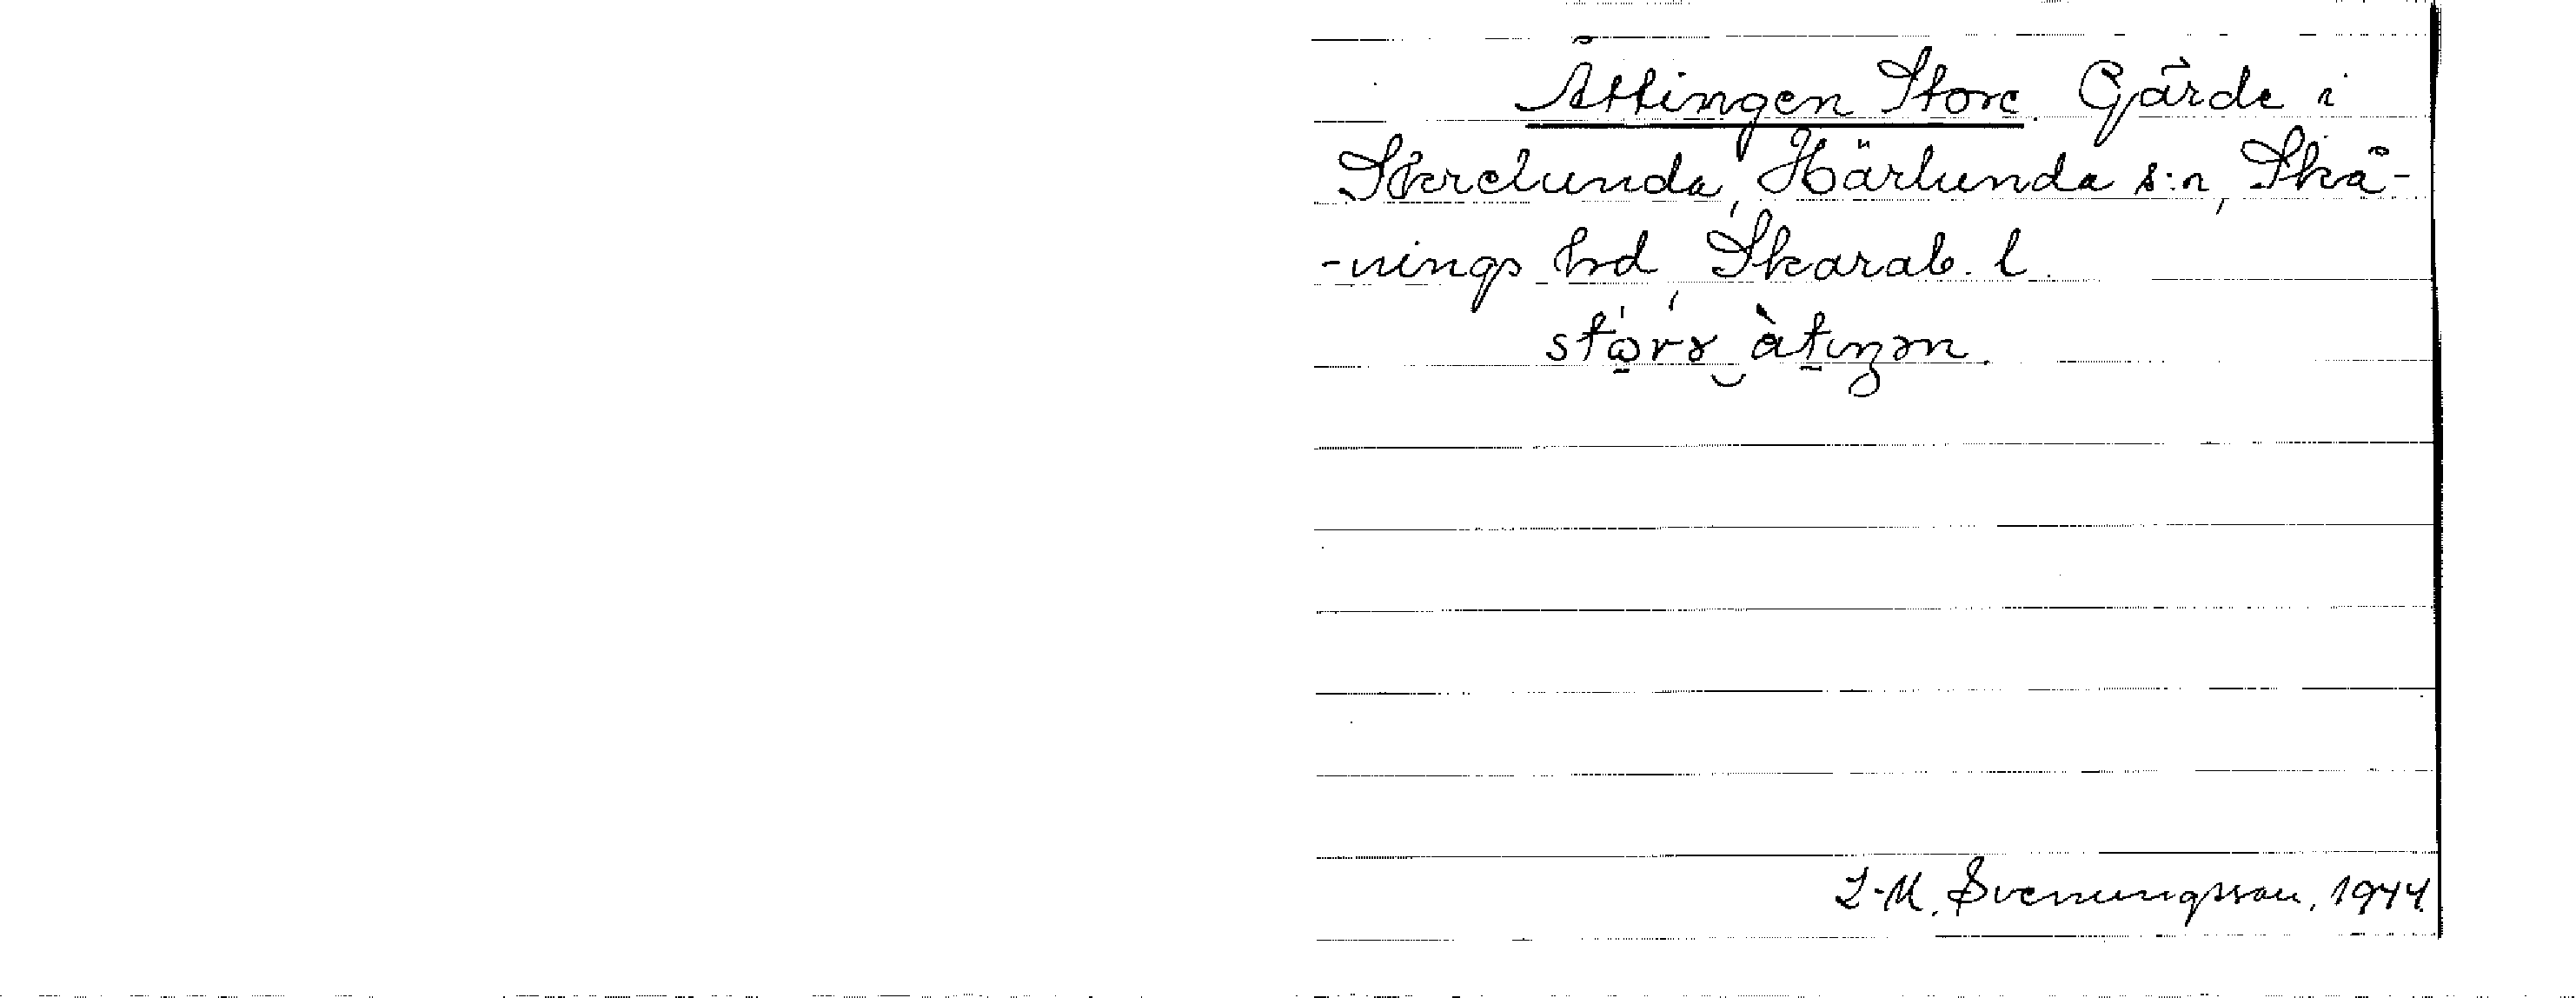 Åttingen Store. Gärde i
Skrelunda, Härlunda s:n, Skå-
-nings hd, Skarab. l.
Svenungsson, 1944.